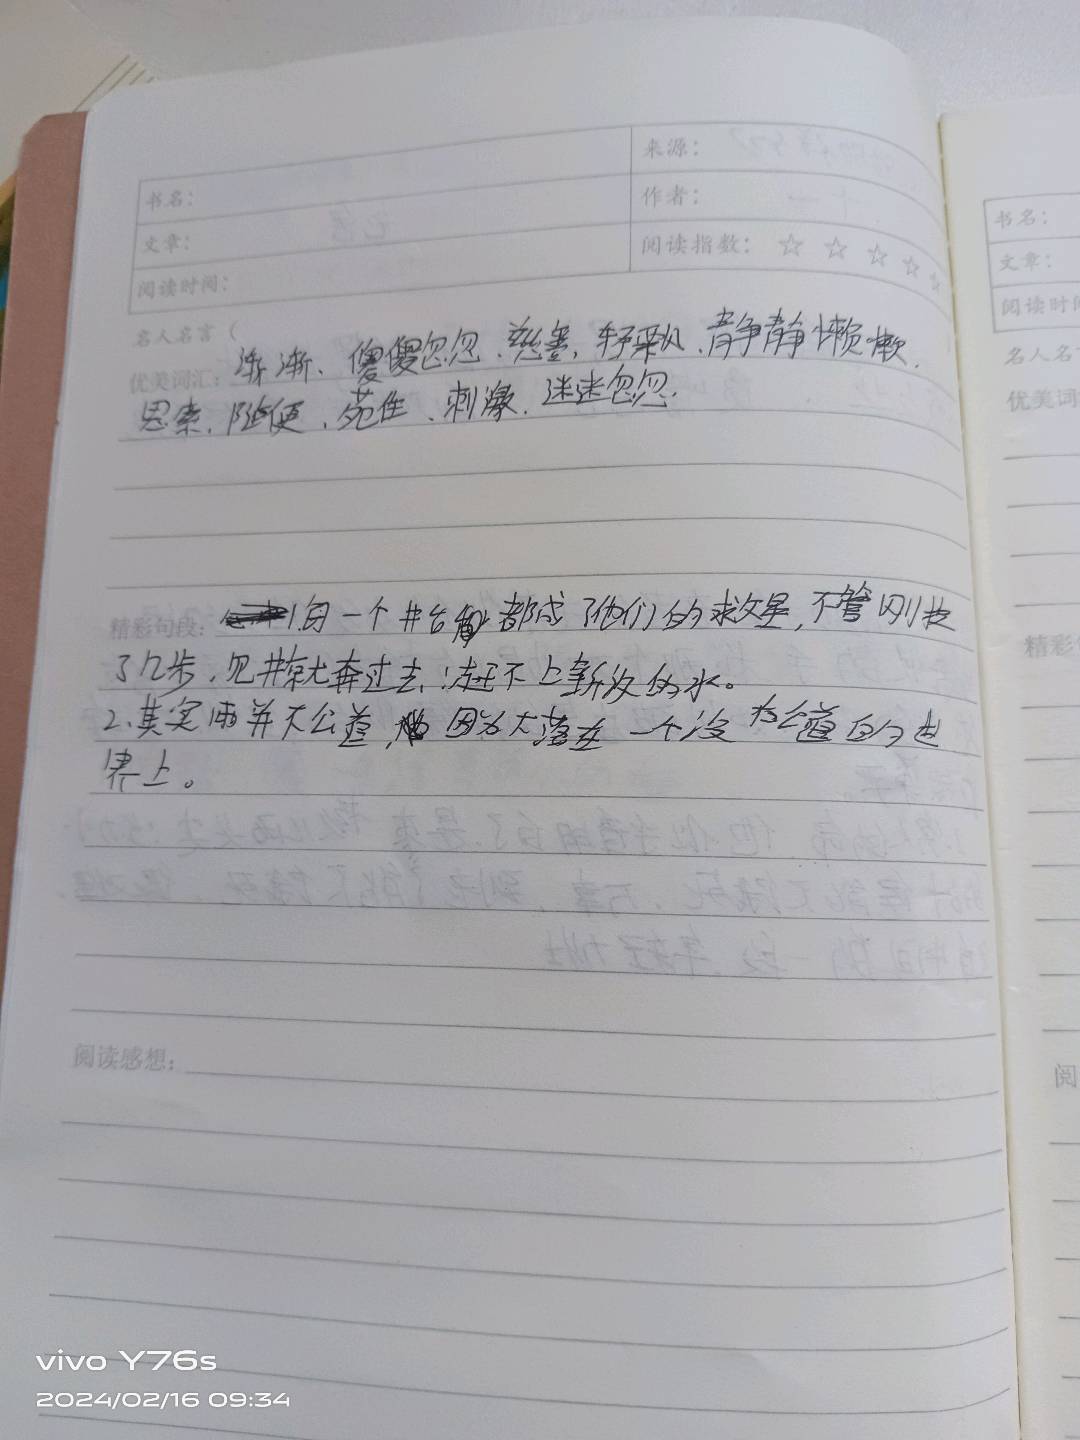 来源：
书名：
作者：
文章：
阅读指数：☆ ☆ ☆ ☆ ☆
阅读时间：
名人名言（
优美词汇：渐渐、傻傻忽忽、慈善、轻飘、静静懒懒、
思索、随便、苑佳、刺激、迷迷忽忽
精彩句段：1.每一个井台都成了他们的救星，不管刚拉
了几步，见井就奔过去；赶不上新汲的水。
2.其实雨并不公道，因为大落在一个没有公道的世
界上。
阅读感想：
书名：
文章：
阅读时间
名人名言
优美词
精彩
阅
vivo Y76s
2024/02/16 09:34